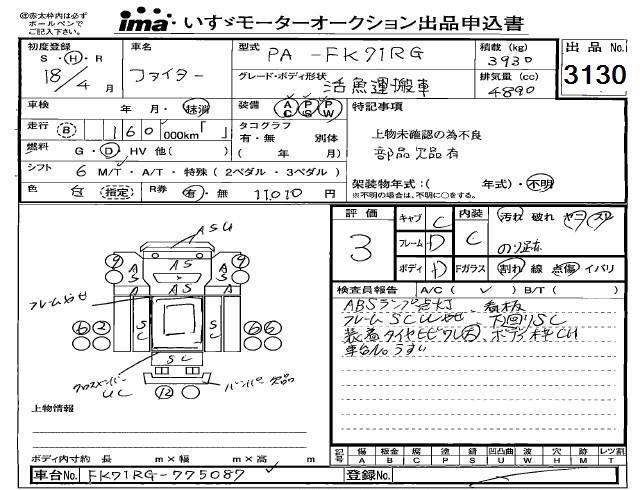 ㊟赤太枠内は必ず
ボールペンで
ご記入下さい。
ima いすゞモーターオークション出品申込書
初度登録
S・H・R
18/4 月
車名
ファイター
型式 PA-FK71RG
グレード・ボディ形状
活魚運搬車
積載(kg)
3930
排気量(cc)
4890
出品No.
3130
車検 年 月・抹消
装備 AC PS PW
特記事項
走行 B 160 000km「 」
タコグラフ 別体
有・無
( 年 月)
上物未確認の為不良
部品欠品有
燃料 G・D・HV 他( )
シフト 6 M/T・A/T・特殊(2ペダル・3ペダル)
架装物年式:( 年式)・不明
※不明の場合は、不明に○をする。
色 白 指定 R券 有・無 11,010 円
評価
3
キャブ C
フレーム D
ボディ D
内装 C
Fガラス
汚れ 破れ ヤニ スレ
のり跡
割れ 線 点傷 イバリ
検査員報告 A/C( ✓ ) B/T( )
ABSランプ点灯、看板
フレームSCUヤセ、下回りSC
装着タイヤヒビワレ大、ボディ枠CH
車台Noうすい
ASU
9 9
AS
A S
AS
A
S
フレームヤセ
SC
SC
6 2
6 6
SC
クロスメンバー
UC
12
バンパー欠品
上物情報
ボディ内寸約 長 m×幅 m×高 m
記号 傷A 板金B 腐C 塗P 錆S 凹凸曲U 波W 穴H 無M レツ割T
車台No. FK71RG-775087
登録No.